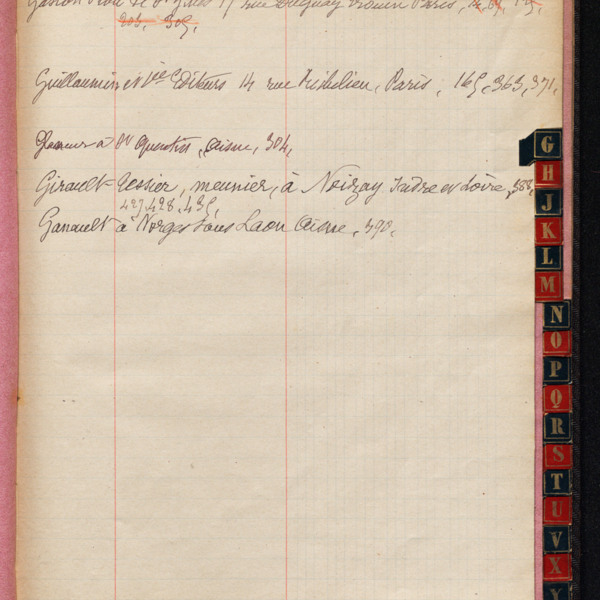 rue Duguay Trouin Paris,
203, 305,
Guillaumin et Cie Editeurs 14 rue Richelieu, Paris, 165, 363, 371,
à St Quentin, Aisne, 304,
Girault-Tessier, meunier, à Noizay Indre et Loire, 388,
427, 428, 435,
Ganault à Vorges sous Laon Aisne, 390,
G
H
J
K
L
M
N
O
P
Q
R
S
T
U
V
X
Y